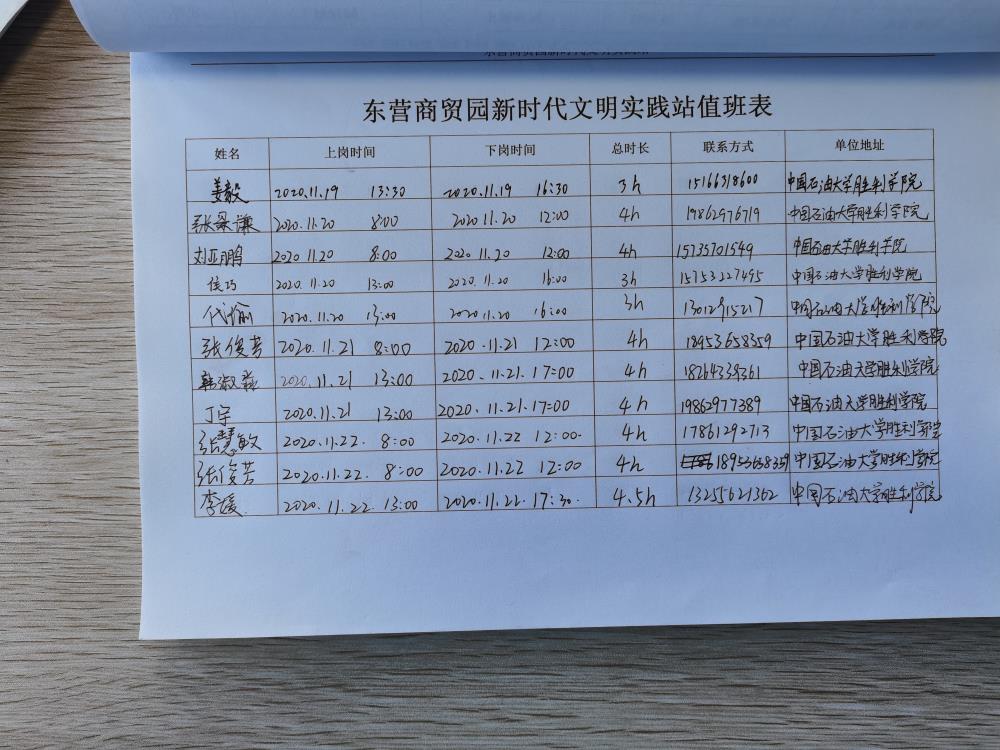 东营商贸园新时代文明实践站值班表
姓名 上岗时间 下岗时间 总时长 联系方式 单位地址
姜毅 2020.11.19 13:30 2020.11.19 16:30 3h 15166318600 中国石油大学胜利学院
张梁谦 2020.11.20 8:00 2020.11.20 12:00 4h 19862976719 中国石油大学胜利学院
刘亚鹏 2020.11.20 8:00 2020.11.20 12:00 4h 15735701549 中国石油大学胜利学院
巧 2020.11.20 13:00 2020.11.20 16:00 3h 15753227495 中国石油大学胜利学院
代瑜 2020.11.20 13:00 2020.11.20 16:00 3h 13012915217 中国石油大学胜利学院
张俊芳 2020.11.21 8:00 2020.11.21 12:00 4h 18953658359 中国石油大学胜利学院
韩淑 2020.11.21 13:00 2020.11.21.17:00 4h 18264339361 中国石油大学胜利学院
丁宇 2020.11.21 13:00 2020.11.21.17:00 4h 19862977389 中国石油大学胜利学院
张慧敏 2020.11.22. 8:00 2020.11.22 12:00. 4h 17861292713 中国石油大学胜利学院
张俊芳 2020.11.22. 8:00 2020.11.22 12:00 4h 18953658359 中国石油大学胜利学院
李媛 2020.11.22. 13:00 2020.11.22. 17:30. 4.5h 13255621362 中国石油大学胜利学院